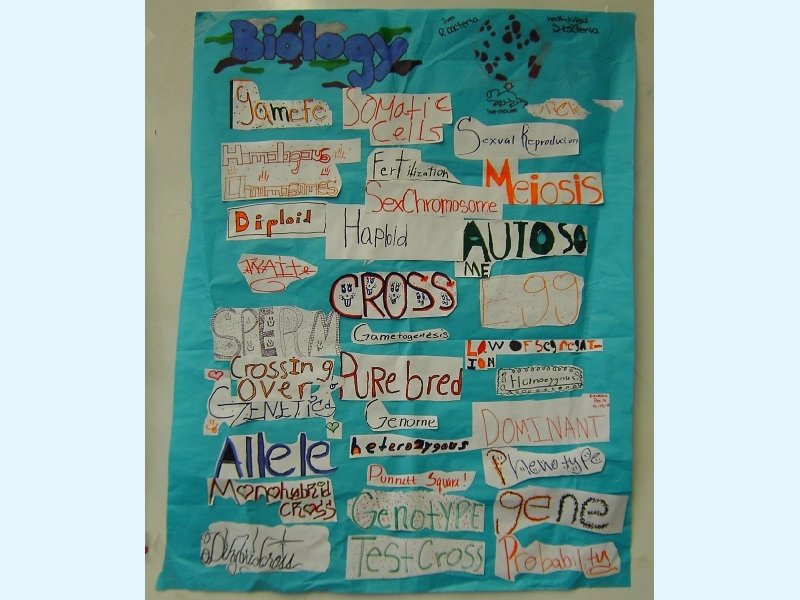 Biology
live
R bacteria
heat-killed
S-bacteria
live mouse
gamete
Somatic
Cells
Sexual Reproduction
Homologous
Chromosomes
Fertilization
Meiosis
SexChromosome
Diploid
Haploid
AUTOSO
ME
WAite
CROSS
Egg
SPERM
Gametogenesis
LAW OF Segregat-
ION
Crossing
Over
PURebred
Homozygous
GENETICS
Genome
DOMINANT
Allele
heterozygous
Phenotype
Monohybrid
cross
Punnett Square!
Genotype
gene
Dihybrid Cross
Test Cross
Probability